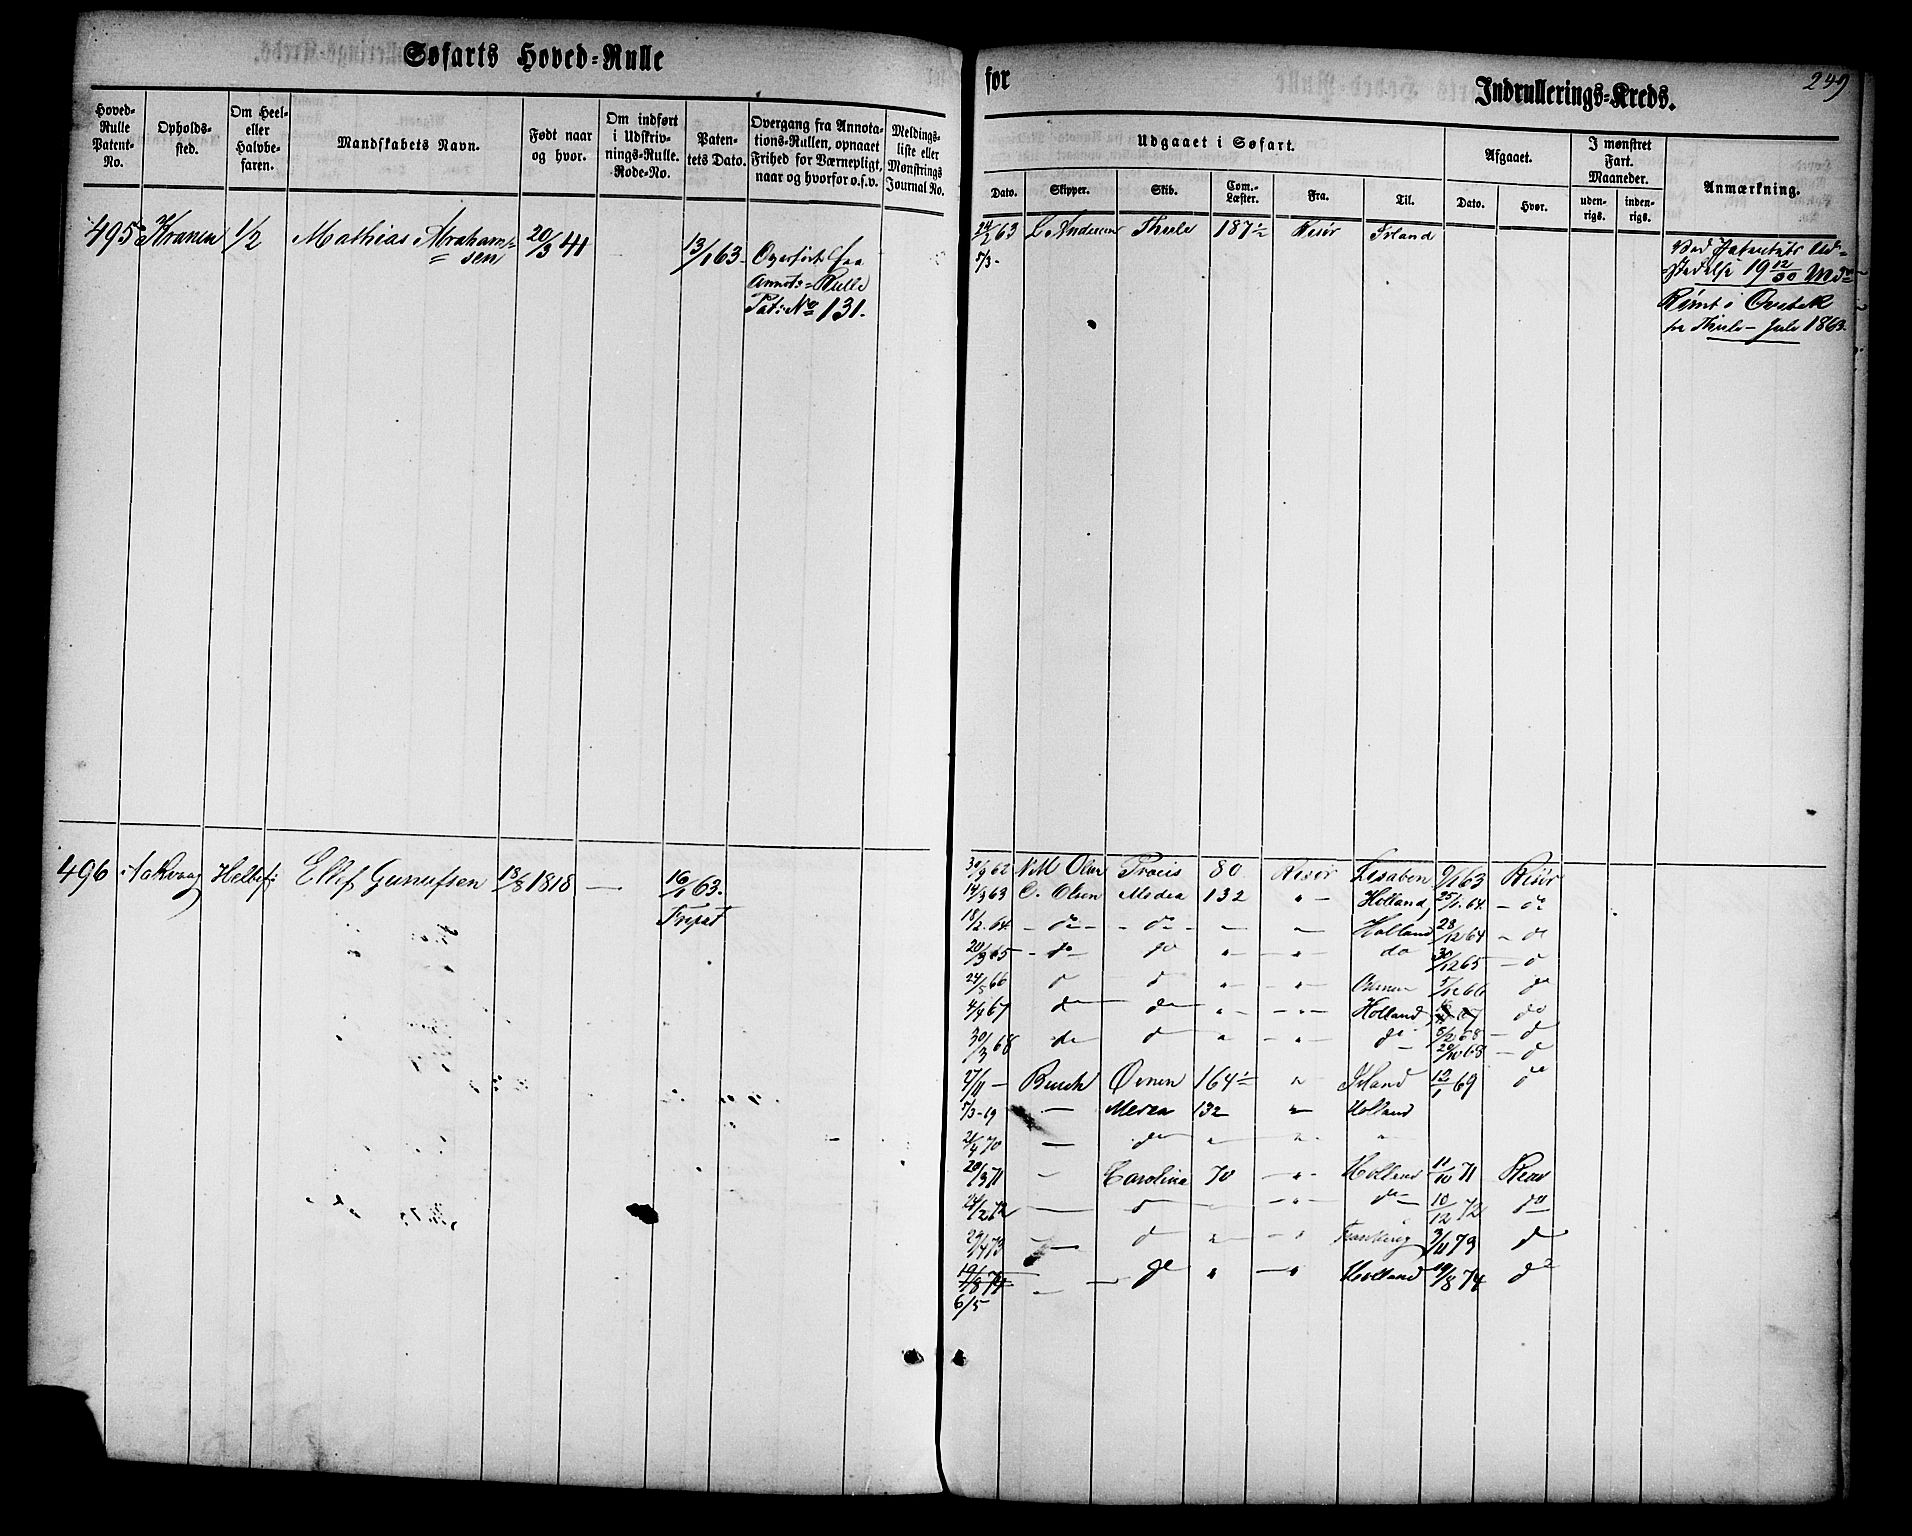 Søfarts Hoved-Rulle
for
Indrullerings-Kreds.
249
Hoved-Rulle Patent-No.
Opholds-sted.
Om Heel- eller Halvbefaren.
Mandskabets Navn.
Født naar og hvor.
Om indført i Udskrivnings-Rulle. Rode-No.
Patentets Dato.
Overgang fra Annotations-Rullen, opnaaet Frihed for Værnepligt, naar og hvorfor o.s.v.
Meldingsliste eller Mønstrings Journal No.
Udgaaet i Søfart.
Dato.
Skipper.
Skib.
Com.-Læster.
Fra.
Til.
Afgaaet.
Dato.
Hvor.
I mønstret Fart. Maaneder.
uden-rigs.
inden-rigs.
Anmærkning.
495 Kranen 1/2 Mathias Abraham= 20/3 41 13/1 63 Overført fra
sen
Annot:= Rulle
Pat: No 131.
24/2 63 L Andersen Thule 187 1/2 Risør Irland
5/3 -
Rømt i Qvebek
fra Thule - Juli 1863.
496 Aakvaag Helbef: Ellef Gunufsen 13/8 1818 — 16/1 63.
30/9 62 N M Olsen 80 Risør Lisabon 9/1 63 Risør
14/3 63 O. Olsen Medea 132 " - Holland 25/1. 64 - do
18/2. 64 - do - - do - - " - Holland 28/12 64 - do
20/3 65 - do - do " - " - do 30/12 65 - d
24/5 66 d d " - " - 5/12 66 do
4/4 67 do do " - " - Holland 67 do
30/3 68 do d " - " - do 5/2 68 - d
20/10 68 - d
27/11 - Busch Ørnen 164 1/2 " Irland 12/1 69 do
5/3 - 19 — Medea 132 " Holland
21/4 70 — do " " "
20/3 71 - Carolina 70 - " - Holland 11/10 71 Risør
24/2 72 — d - " - do 10/12 72 do
29/4 73 — d " - " 3/11 73 d
19/8 74 — do " - " Holland 19/8 74 do
6/5 —